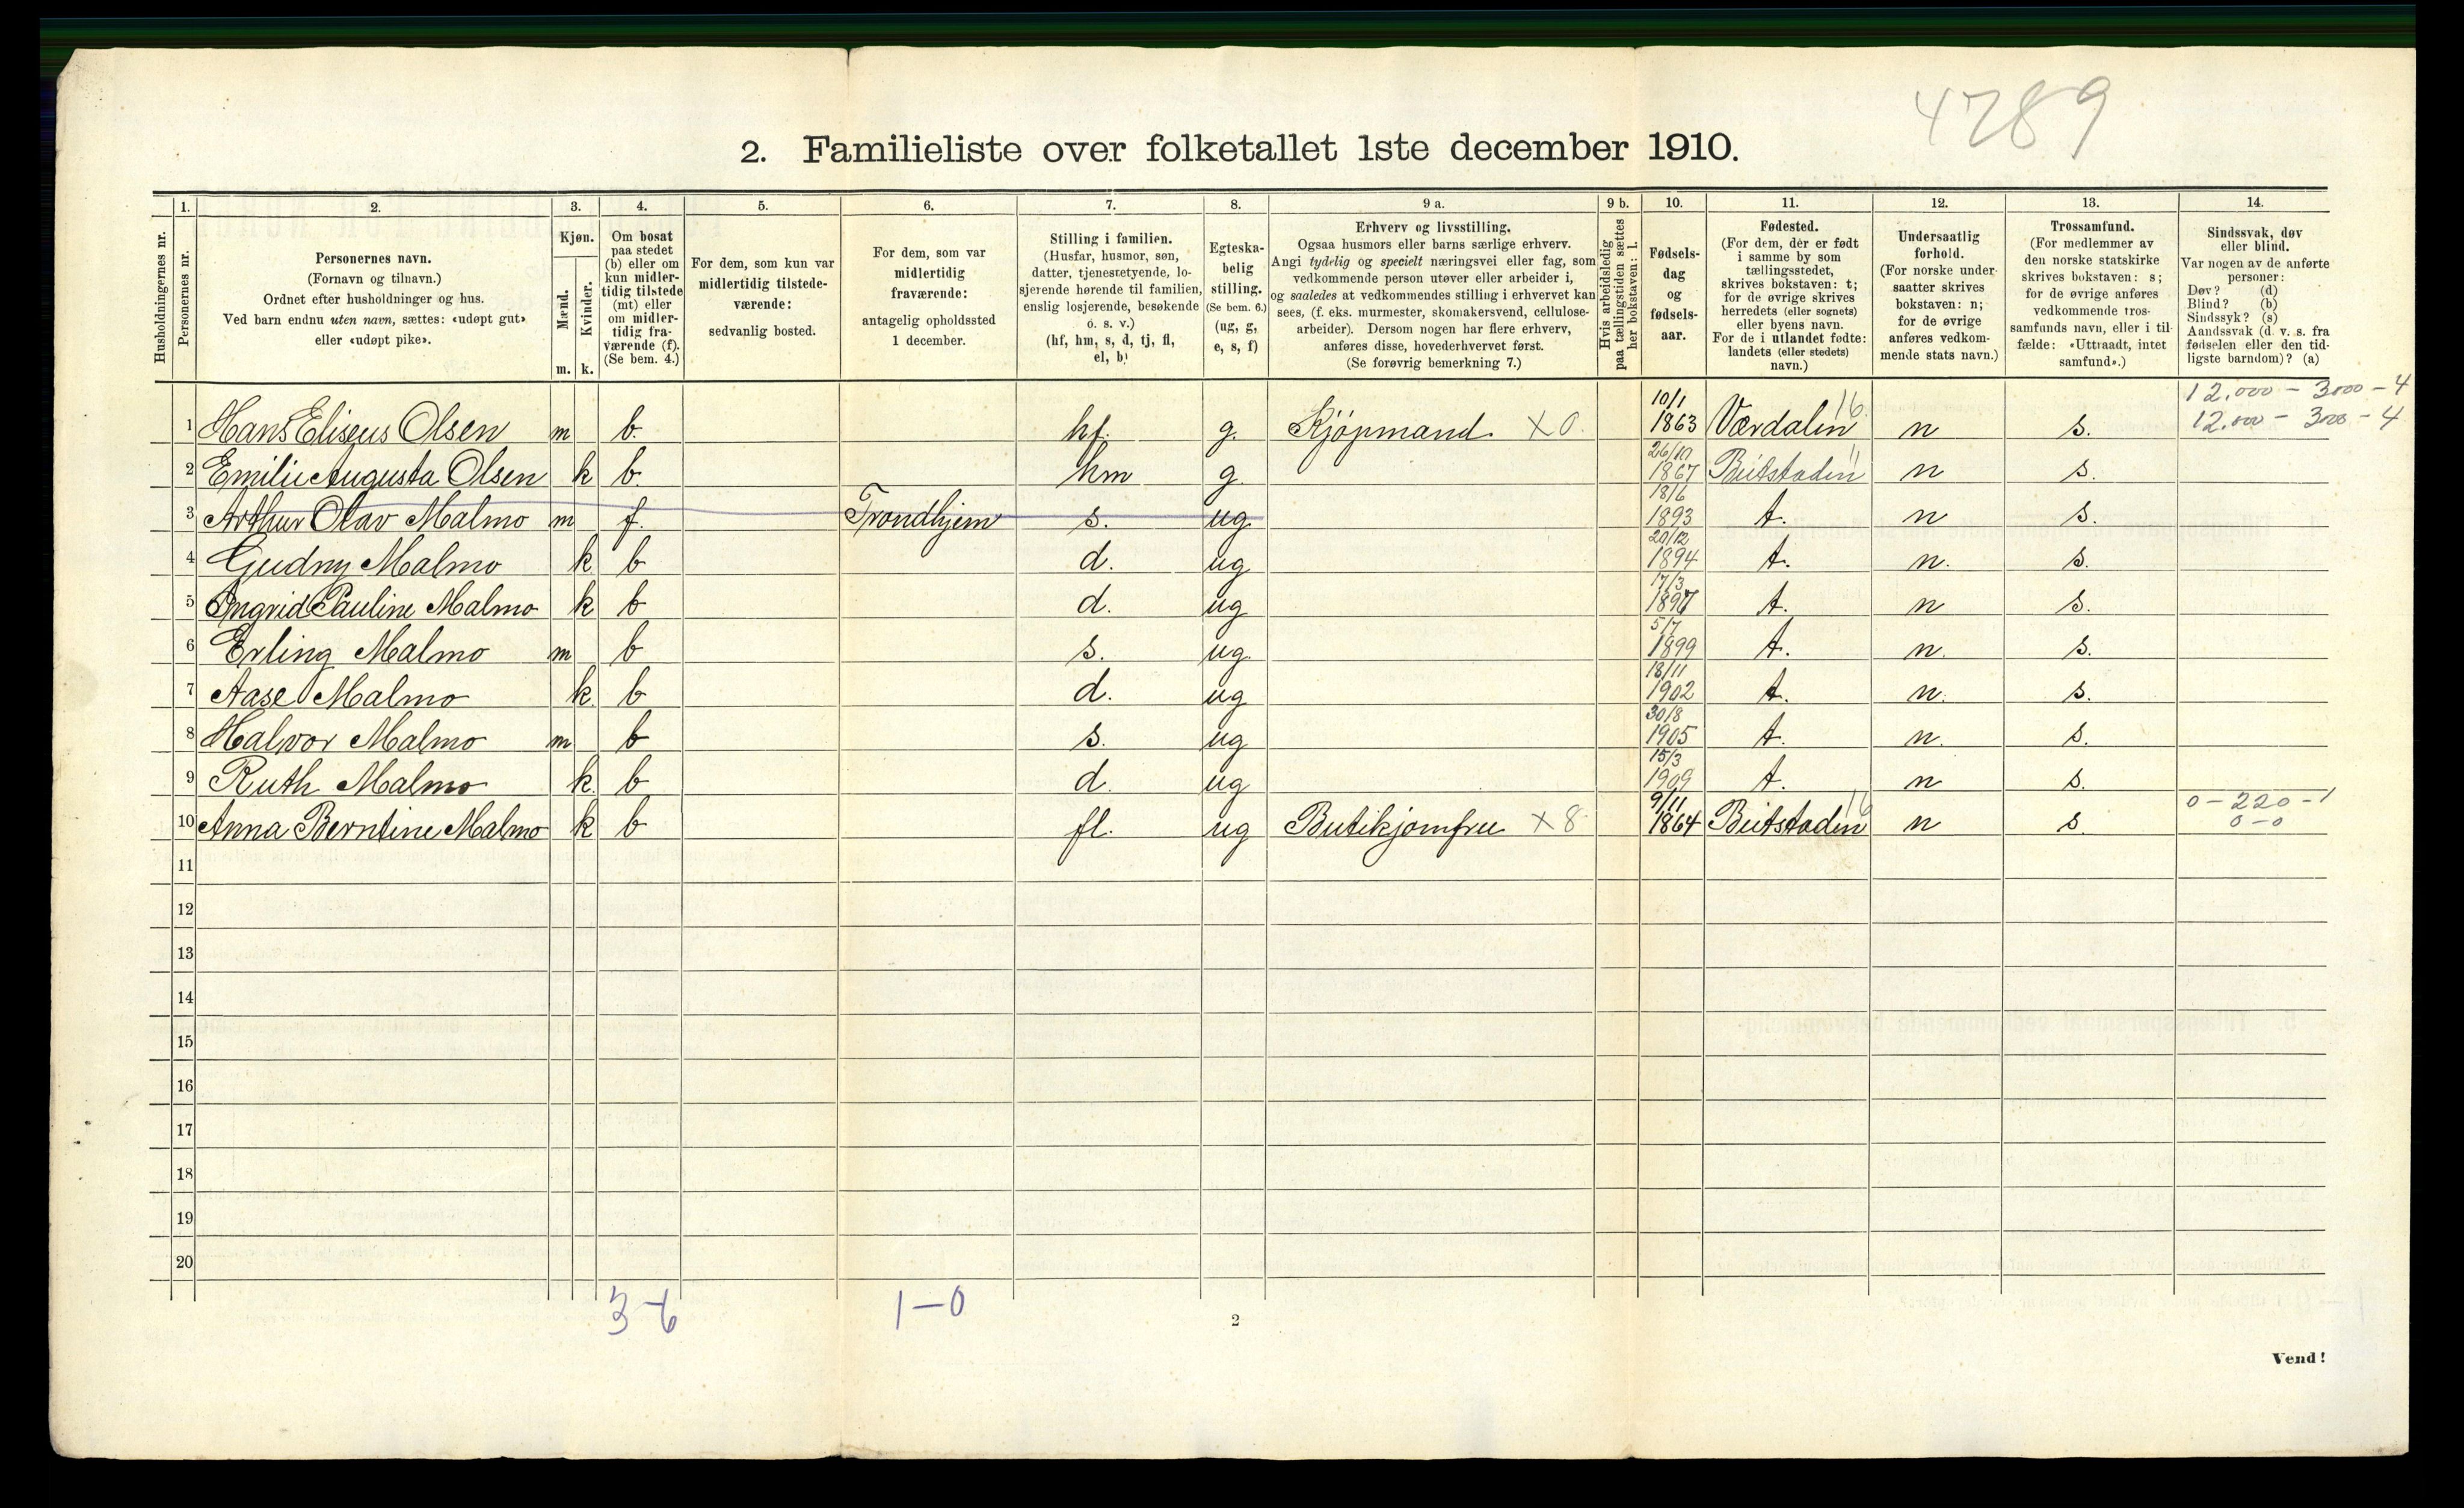 4789
2. Familieliste over folketallet 1ste december 1910.
Husholdningernes nr.
1. Personernes nr.
2. Personernes navn.
(Fornavn og tilnavn.)
Ordnet efter husholdninger og hus.
Ved barn endnu uten navn, sættes: «udøpt gut»
eller «udøpt pike».
3. Kjøn.
Mænd. Kvinder.
m. k.
4. Om bosat
paa stedet
(b) eller om
kun midler-
tidig tilstede
(mt) eller
om midler-
tidig fra-
værende (f).
(Se bem. 4.)
5. For dem, som kun var
midlertidig tilstede-
værende:
sedvanlig bosted.
6. For dem, som var
midlertidig
fraværende:
antagelig opholdssted
1 december.
7. Stilling i familien.
(Husfar, husmor, søn,
datter, tjenestetyende, lo-
sjerende hørende til familien,
enslig losjerende, besøkende
o. s. v.)
(hf, hm, s, d, tj, fl,
el, b)
8. Egteska-
belig
stilling.
(Se bem. 6.)
(ug, g,
e, s, f)
9 a. Erhverv og livsstilling.
Ogsaa husmors eller barns særlige erhverv.
Angi tydelig og specielt næringsvei eller fag, som
vedkommende person utøver eller arbeider i,
og saaledes at vedkommendes stilling i erhvervet kan
sees, (f. eks. murmester, skomakersvend, cellulose-
arbeider). Dersom nogen har flere erhverv,
anføres disse, hovederhvervet først.
(Se forøvrig bemerkning 7.)
9 b. Hvis arbeidsledig
paa tællingstiden sættes
her bokstaven: l.
10. Fødsels-
dag
og
fødsels-
aar.
11. Fødested.
(For dem, der er født
i samme by som
tællingsstedet,
skrives bokstaven: t;
for de øvrige skrives
herredets (eller sognets)
eller byens navn.
For de i utlandet fødte:
landets (eller stedets)
navn.)
12. Undersaatlig
forhold.
(For norske under-
saatter skrives
bokstaven: n;
for de øvrige
anføres vedkom-
mende stats navn.)
13. Trossamfund.
(For medlemmer av
den norske statskirke
skrives bokstaven: s;
for de øvrige anføres
vedkommende tros-
samfunds navn, eller i til-
fælde: «Uttraadt, intet
samfund».)
14. Sindssvak, døv
eller blind.
Var nogen av de anførte
personer:
Døv? (d)
Blind? (b)
Sindssyk? (s)
Aandssvak (d. v. s. fra
fødselen eller den tid-
ligste barndom)? (a)
12.000 - 3000 - 4
1 Hans Eliseus Olsen m b. hf. g. Kjöpmand X 0. 10/1 1863 Værdalen 16 n s. 12.000 - 3000 - 4
2 Emilie Augusta Olsen k b. hm g. 26/10 1867 Beitstaden 11 n s.
3 Arthur Olav Malmo m f. Trondhjem s. ug 18/6 1893 t. n s.
4 Gudny Malmo k b d. ug 20/12 1894 t. n. s.
5 Ingrid Pauline Malmo k b d. ug 17/3 1897 t. n s.
6 Erling Malmo m b s. ug 5/7 1899 t. n. s.
7 Aase Malmo k b d. ug 18/11 1902 t. n. s.
8 Halvor Malmo m b s. ug 30/8 1905 t. n. s.
9 Ruth Malmo k. b d. ug 15/3 1909 t. n s.
10 Anna Berntine Malmo k b fl. ug Butikjomfru X 8 9/11 1864 Beitstaden 16 n s. 0 - 220 - 1
0 - 0
11
12
13
14
15
16
17
18
19
20
3-6 1-0
2
Vend!